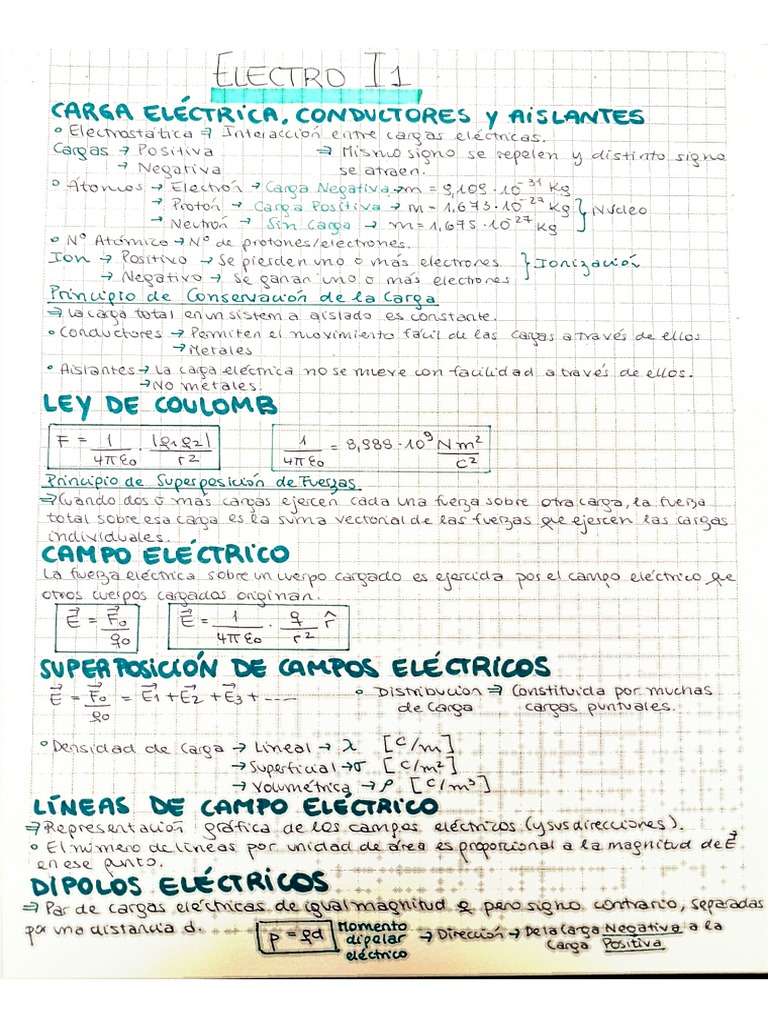 ELECTRO I1
CARGA ELÉCTRICA, CONDUCTORES Y AISLANTES
° Electrostática ⇒ Interacción entre cargas eléctricas.
Cargas → Positiva ⇒ Mismo signo se repelen y distinto signo
→ Negativa se atraen.
° Átomos → Electrón → Carga Negativa → m = 9,109 · 10^-31 Kg
→ Protón → Carga Positiva → m = 1,673 · 10^-27 Kg } Núcleo
→ Neutrón → Sin Carga → m = 1,675 · 10^-27 Kg
° Nº Atómico → Nº de protones/electrones.
Ion → Positivo → Se pierden uno o más electrones } Ionización
→ Negativo → Se ganan uno o más electrones
Principio de Conservación de la Carga
⇒ La carga total en un sistema aislado es constante.
° Conductores → Permiten el movimiento fácil de las cargas a través de ellos
→ Metales
° Aislantes → La carga eléctrica no se mueve con facilidad a través de ellos.
→ No metales.
LEY DE COULOMB
F = 1/4πε0 · |q1q2|/r² 1/4πε0 = 8,988 · 10^9 Nm²/C²
Principio de Superposición de Fuerzas
⇒ Cuándo dos o más cargas ejercen cada una fuerza sobre otra carga, la fuerza
total sobre esa carga es la suma vectorial de las fuerzas que ejercen las cargas
individuales.
CAMPO ELÉCTRICO
La fuerza eléctrica sobre un cuerpo cargado es ejercida por el campo eléctrico qe
otros cuerpos cargados originan.
E⃗ = F⃗0/q0 E⃗ = 1/4πε0 · q/r² r̂
SUPERPOSICIÓN DE CAMPOS ELÉCTRICOS
E⃗ = F⃗0/q0 = E⃗1 + E⃗2 + E⃗3 + ---- ° Distribución ⇒ Constituida por muchas
de Carga cargas puntuales.
° Densidad de Carga → Lineal → λ [C/m]
→ Superficial → σ [C/m²]
→ Volumétrica → ρ [C/m³]
LÍNEAS DE CAMPO ELÉCTRICO
⇒ Representación gráfica de los campos eléctricos (y sus direcciones).
° El número de líneas por unidad de área es proporcional a la magnitud de E⃗
en ese punto.
DIPOLOS ELÉCTRICOS
⇒ Par de cargas eléctricas de igual magnitud q pero signo contrario, separadas
por una distancia d.
p = qd Momento dipolar eléctrico → Dirección → De la Carga Negativa a la
Carga Positiva